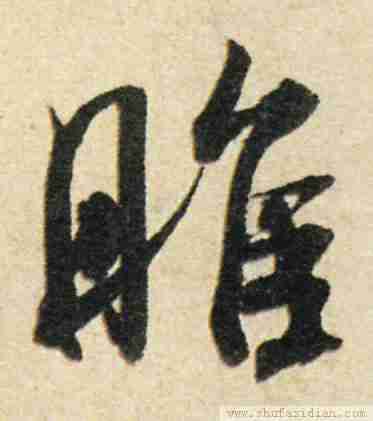 睢
www.shufazidian.com